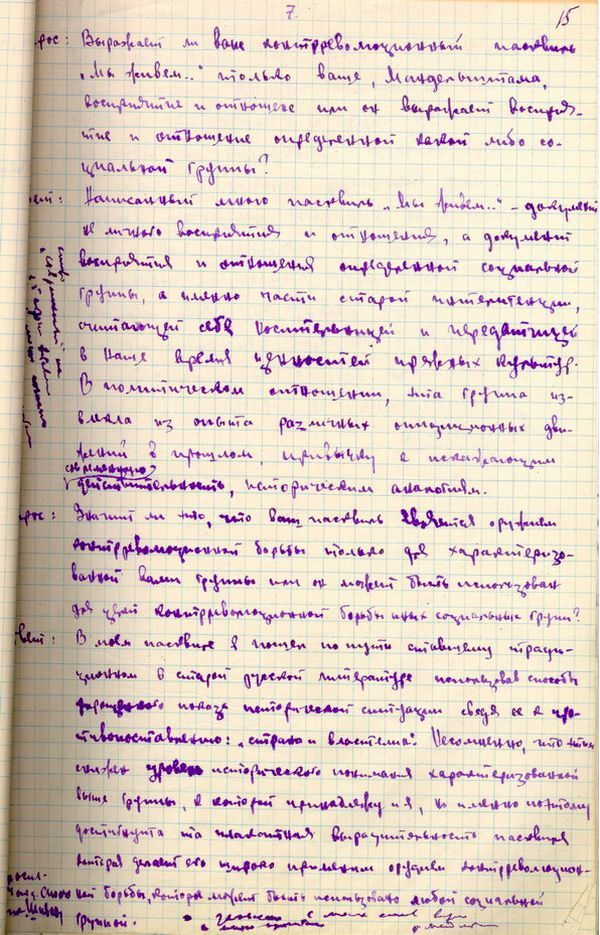 7.
15
рос: Выражает ли ваш контрреволюционный пасквиль
„Мы живем.." только ваше, Мандельштама,
восприятие и отношене или он выражает восприя-
тие и отношение определенной какой либо со-
циальной группы?
вет: Написанный мною пасквиль „Мы живем.." – документ
не личного восприятия и отношения, а документ
восприятия и отношения определенной социальной
группы, а именно части старой интеллигенции,
считающей себя носительницей и передатчицей
в наше время ценностей прежних культур.
В политическом отношении, эта группа из-
влекла из опыта различных оппозиционных дви-
жений в прошлом, привычку к искажающим
современную
действительность, историческим аналогиям.
рос: Значит ли это, что ваш пасквиль является оружием
контрреволюционной борьбы только для характеризо-
ванной вами группы или он может быть использован
для целей контрреволюционной борьбы иных социальных групп?
твет: В моем пасквиле я пошел по пути ставшему тради-
ционном в старой русской литературе использовав способы
упрощенного показа исторической ситуации сведя ее к про-
тивопоставлению: „страна и властелин". Несомненно, что этим
снижен уровень исторического понимания характеризованной
выше группы, к которой принадлежу и я, но именно поэтому
достигнута та плакатная выразительность пасквиля
которая делает его широко применимым орудием контрреволюцион-
ной борьбы, которое может быть использовано любой социальной
группой.